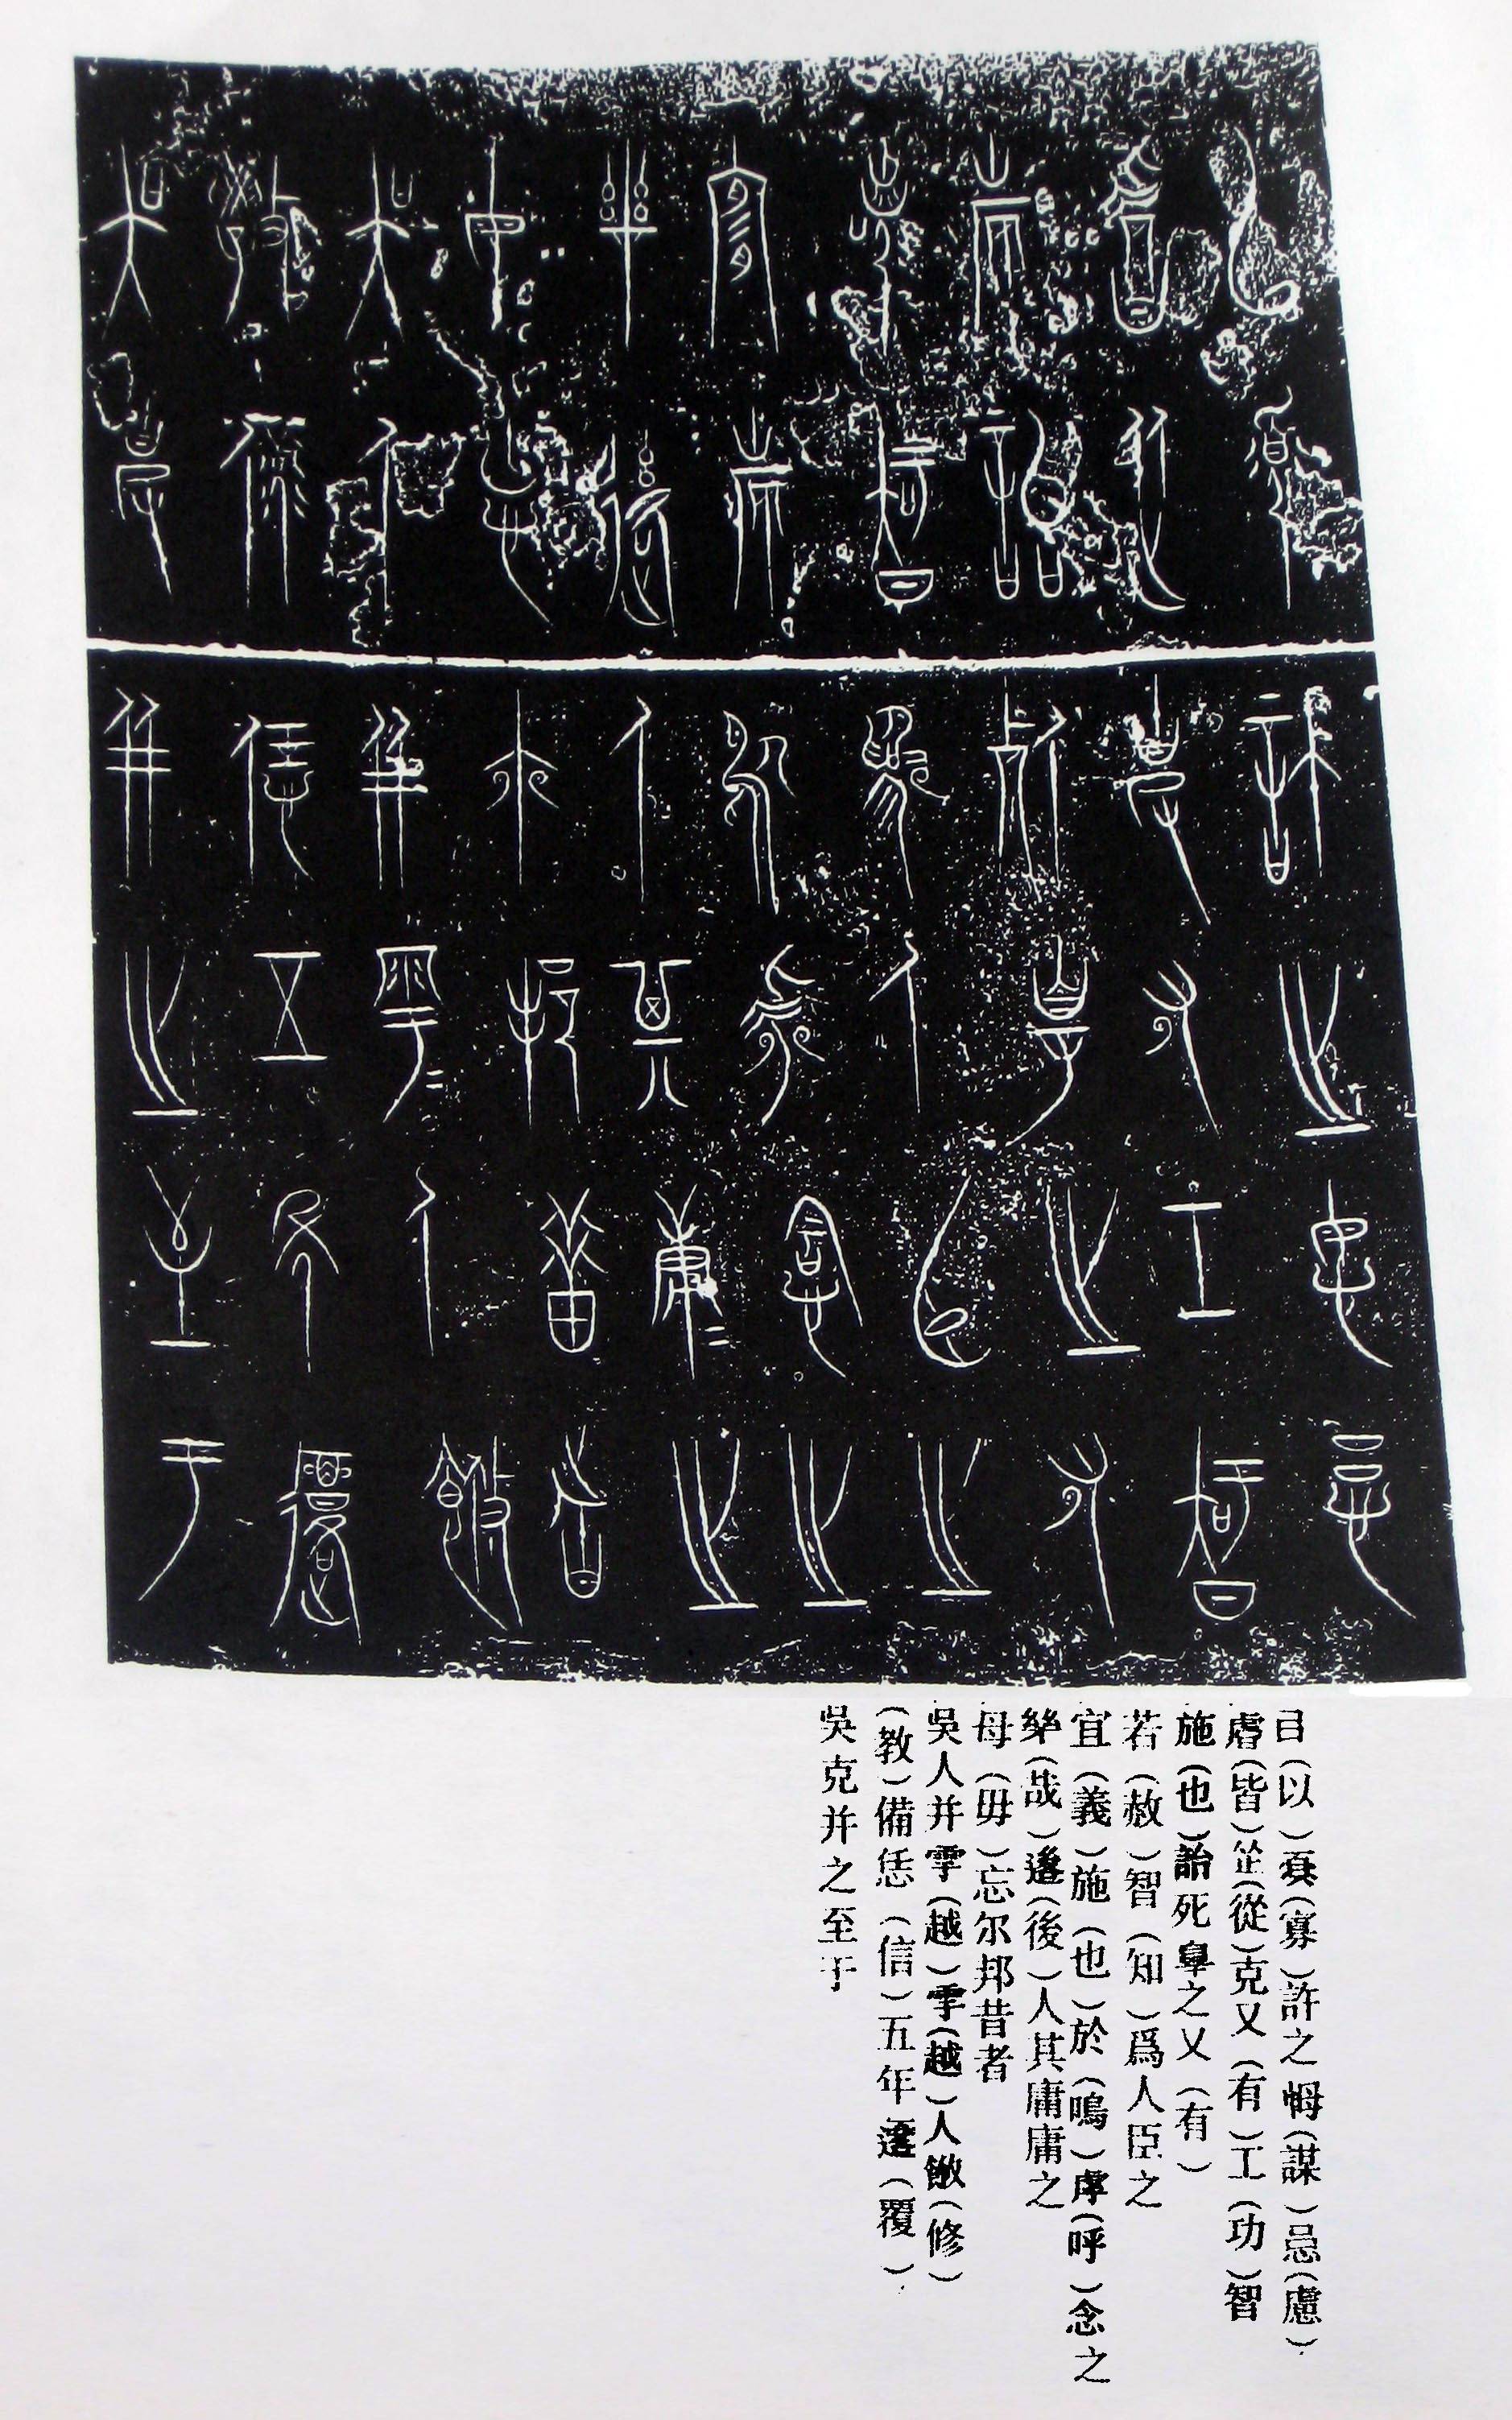 㠯(以)寡(寡)許之㥄(謀)忌(慮)
虘(皆)從(從)克又(有)工(功)智
施(也)詒死辠之又(有)
若(赦)智(知)爲人臣之
宜(義)施(也)於(嗚)虖(呼)念之
(哉)後(後)人其庸庸之
母(毋)忘尔邦昔者
吳人并雩(越)雩(越)人(修)
(教)備恁(信)五年(覆)
吳克并之至于